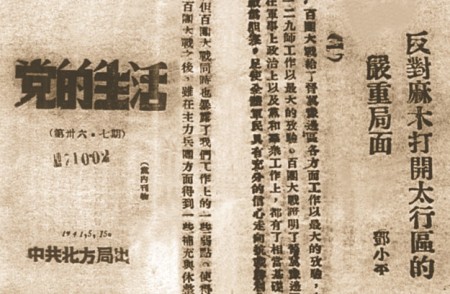 党的生活
(第卅六·七期)
71002
(黨內刊物)
1941,5,15
中共北方局出
反對麻木打開太行區的
嚴重局面
鄧小平
(一)
百團大戰給了晉冀豫邊區各方面工作以最大的攷驗，
一二九師工作以最大的攷驗。百團大戰證明了晉冀豫邊
在軍事上政治上以及黨和羣衆工作上，都有了相當基礎
足使全體軍民具有充分的信心走向抗戰勝利
但百團大戰同時也暴露了我們工作上的一些弱點。使得
百團大戰之後，雖在主力兵團方面得到一些補充與休整